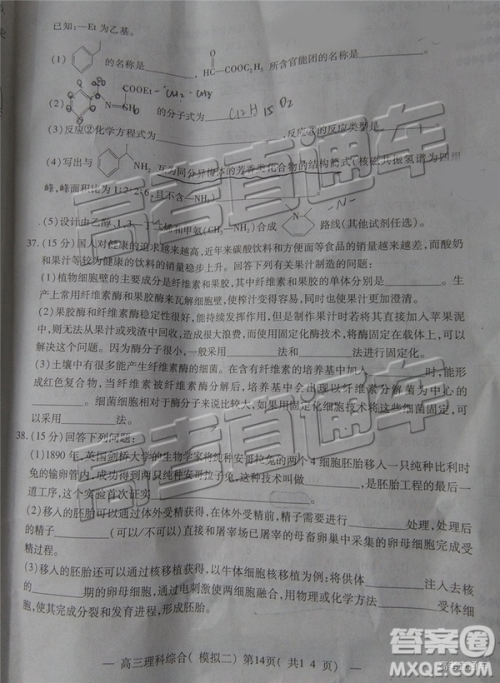 已知:—Et为乙基。
(1) 的名称是____, H—C—COOC₂H₅ 所含官能团的名称是____。
O
COOEt -CH₂-CH₃
(2) 的分子式为 C12H15O2
(3)反应②化学方程式为____,____的反应类型是____。
(4)写出与 NH₂
峰,峰面积比为1:2:2:6,且只含
(5)设计由乙醇、1,3- 和甲氨(CH₃—NH₂)合成 N 路线(其他试剂任选)。 -N-
37.(15分)国人对健康的追求越来越高,近年来碳酸饮料和方便面等食品的销量越来越差,而酸奶
和果汁等较为健康的饮料的销量稳步上升。回答下列有关果汁制造的问题:
(1)植物细胞壁的主要成分是纤维素和果胶,果胶是由____聚合而成的。生
产上常用纤维素酶和果胶酶来瓦解细胞壁,使榨汁变得容易,同时也使果汁变得更澄清。
(2)果胶酶和纤维素酶稳定性很好,能持续发挥作用,但在制作果汁时若将其直接加入苹果泥
中,则无法从果汁中回收,造成很大的浪费。使用固定化酶技术,将酶固定在载体上,可以
解决这个问题。因为酶分子很小,一般采用____法和____法进行固定化。
(3)土壤中有很多能生产纤维素酶的细菌。在含有纤维素的培养基中加入____时,能形
成红色复合物,当纤维素被纤维素酶分解后,培养基中会出现以纤维素分解菌为中心的
____。细菌细胞相对于酶分子来说比较大,如果使用固定化细胞技术将这些细菌固定,可
以采用____法。
38.(15分)回答下列问题:
(1)1890年,英国剑桥大学的生物学家将纯种安哥拉兔的两个4细胞胚胎移入一只纯种比利时
兔的输卵管内,成功获得了两只纯种安哥拉兔,这种技术叫做____,是胚胎工程的最后一
道工序,这个实验首次证实____。
(2)移入的胚胎还可以通过体外受精获得,在体外受精前,精子需要进行____处理,处理后
的精子____(可以/不可以)直接和屠宰场已屠宰的母畜卵巢中采集的卵母细胞完成受
精过程。
(3)移入的胚胎还可以通过核移植获得,以牛体细胞核移植为例:将供体____注入去核
的____期的卵母细胞,通过电刺激使两细胞融合,用物理或化学方法激活受体细胞,使其
完成分裂和发育进程,形成胚胎。
— 高三理科综合(模拟二) 第14页(共14页) —
高考直通车
答案圈